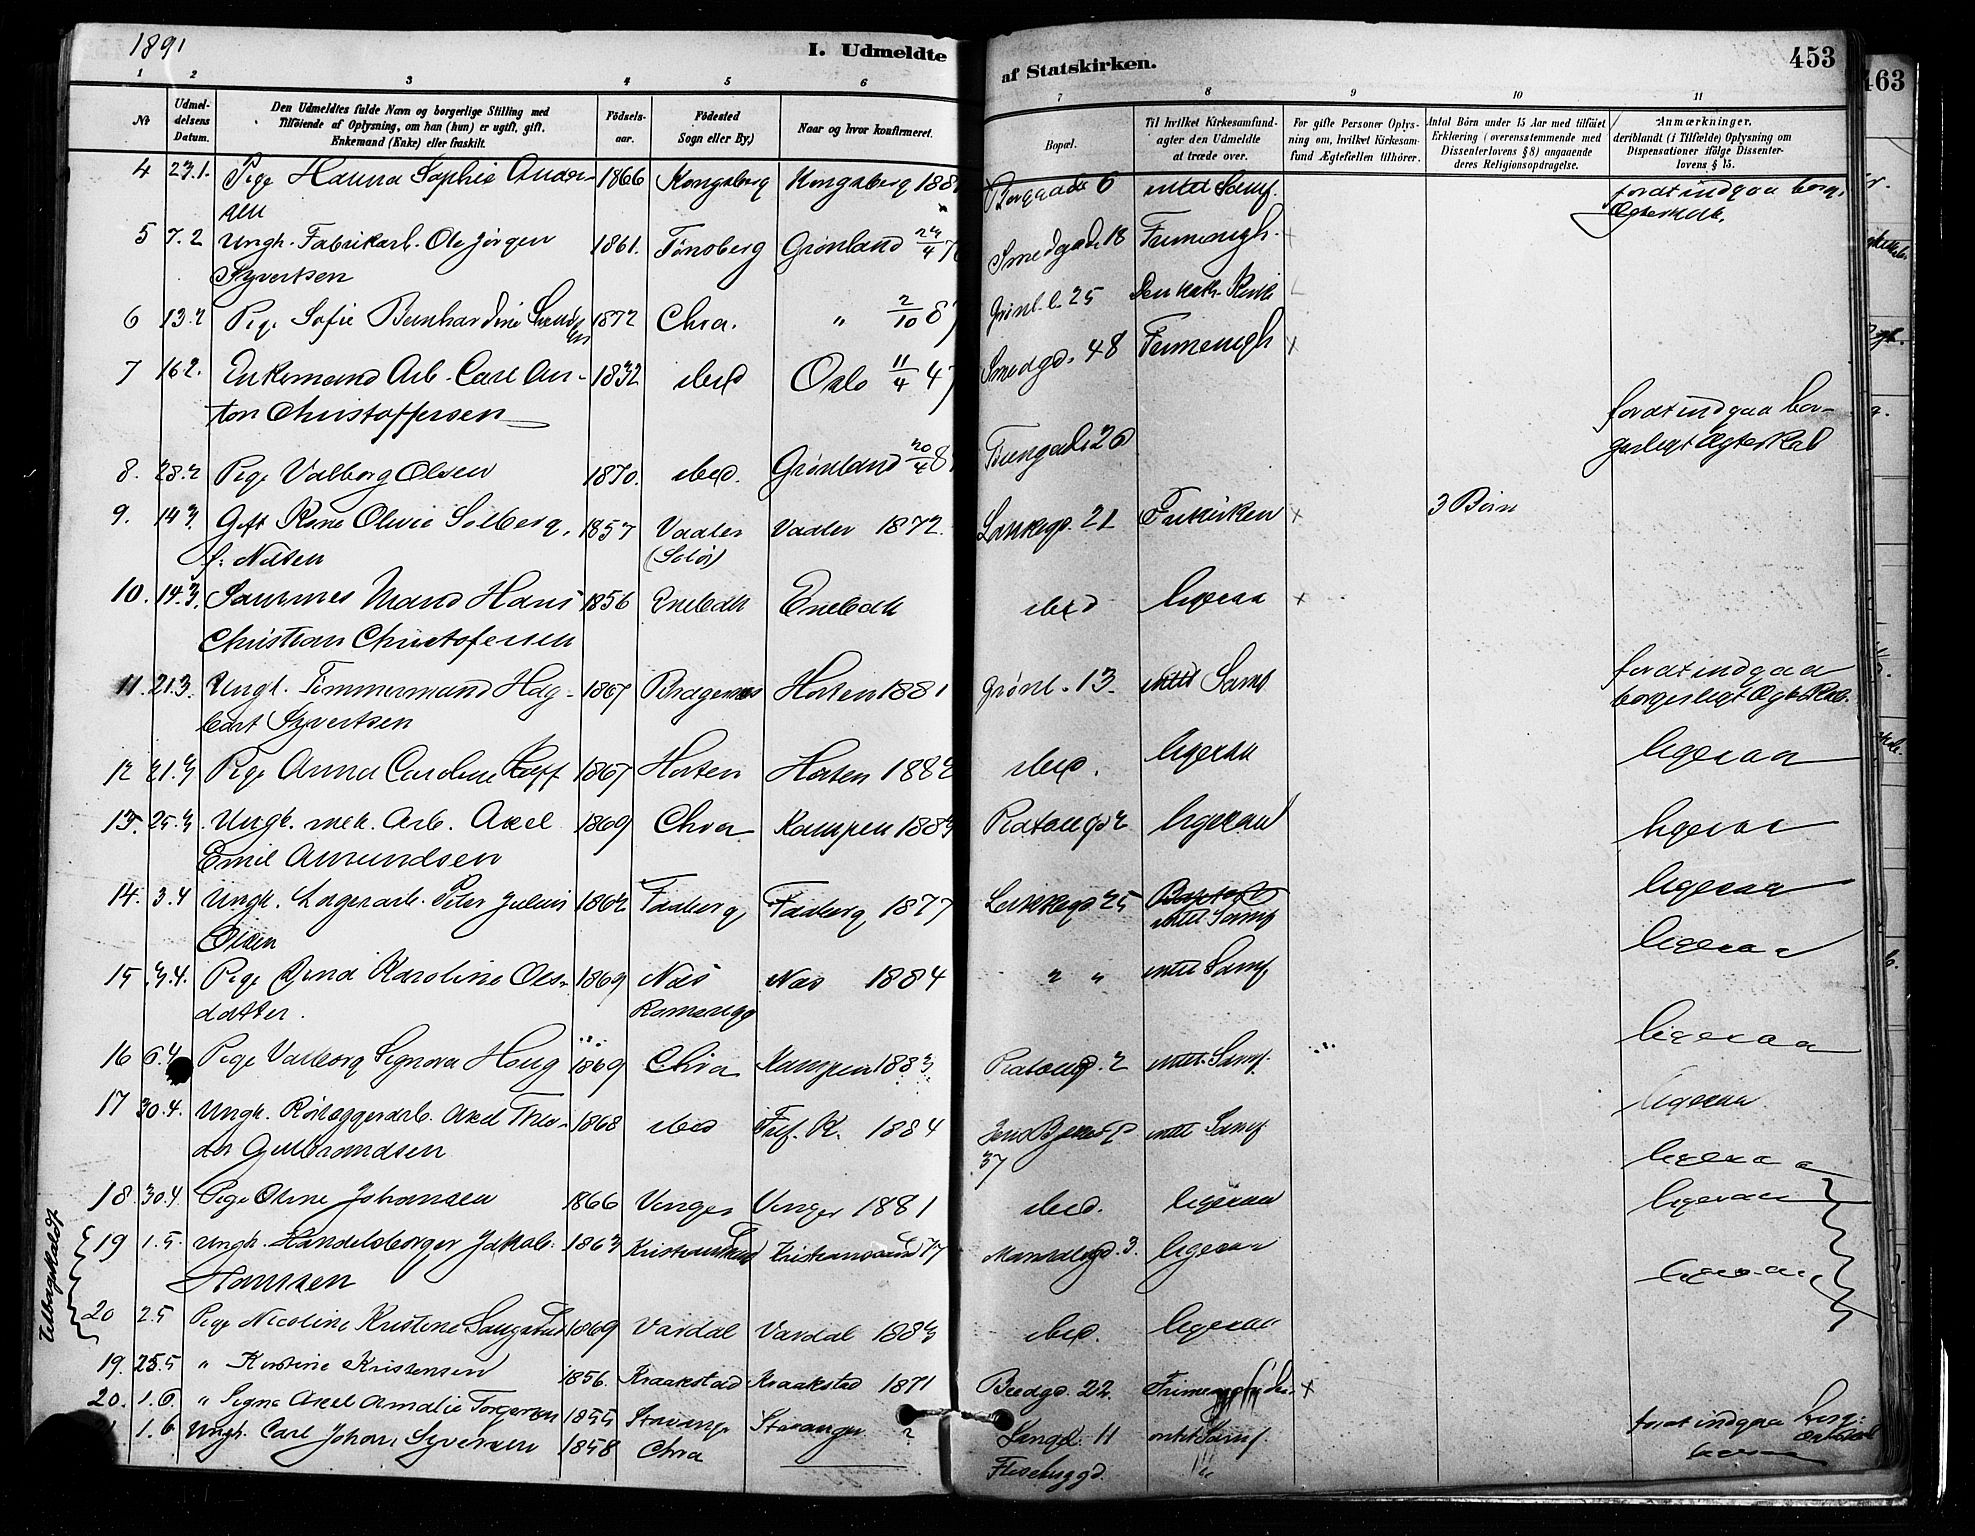 1891
I. Udmeldte
af Statskirken.
453
463
1 2 3 4 5 6 7 8 9 10 11
No
Udmel-
delsens
Datum.
Den Udmeldtes fulde Navn og borgerlige Stilling med
Tilføiende af Oplysning, om han (hun) er ugift, gift,
Enkemand (Enke) eller fraskilt.
Fødsels-
aar.
Fødested
Sogn eller By.)
Naar og hvor konfirmeret.
Bopæl.
Til hvilket Kirkesamfund
agter den Udmeldte
at træde over.
For gifte Personer Oplys-
ning om, hvilket Kirkesam-
fund Ægtefællen tilhører.
Antal Børn under 15 Aar med tilføiet
Erklæring (overensstemmende med
Dissenterlovens § 8) angaaende
deres Religionsopdragelse.
Anmærkninger,
deriblandt (i Tilfælde) Oplysning om
Dispensationer ifølge Dissenter-
lovens § 15.
4 23.1. Pige Hanna Sophie Ander- 1866 Kongsberg Kongsberg 188 Borggade 6 intet Samf. for at indgaa borg.
sen Ægteskab.
5 7.2 Ungk. Fabrikarb. Ole Jørgen 1861. Tønsberg Grønland 23/4 7 Smedgade 18 Frimenigh. x
Syvertsen
6 13.2 Pige Sofie Bernhardine 1872 Chra. " 2/10 87 Grønl. l. 25 Den kath. Kirke
7 16 2. Enkemand Arb. Carl An- 1832 ibid Oslo 11/4 47 Smedgd. 48 Frimenigh x
ton Christoffersen
8. 28.2 Pige Valborg Olsen 1870. ibid. Grønland 20/4 8 26 for at indgaa bor-
gerligt Ægteskab
9. 14 3. Gift Karen Olivie Solberg, 1857 Vaaler Vaaler 1872. Lakkegd. 21 Frikirken x 3 Børn
f. Nilsen (Solør)
10. 14.3. Sammes Mand Hans 1856 Enebak Enebak ibid ligesaa x
Christian Christofersen
11. 21.3. Ungk. Tømmermand Hag- 1867 Bragernes Horten 1881 Grønl. 13. intet Samf for at indgaa
bart Syvertsen borgerligt Ægteskab.
12 21.3 Pige Anna Caroline 1867 Horten Horten 1882 ibid. ligesaa ligesaa
13. 25.3. Ungk. mek. Arb. Axel 1869 Chra Kampen 1883 Platougd 2 ligesaa ligesaa
Emil Amundsen
14. 3.4 Ungk. Lagerarb. Peter Julius 1862 Faaberg Faaberg 1877 Lakkegd 25 intet Samf ligesaa
Olsen
15 3.4. Pige Karoline Ols- 1869 Næs Næs 1884 " " intet Samf ligesaa
datter. Romerige
16 6.4 Pige Valborg Signora Haug 1869 Chra Kampen 1883 Platougd. 2 intet Samf. ligesaa
17 30.4. Ungk. Rørlæggerarb. Axel Theo- 1868 ibid Tref. K. 1884 Jens Bjelkes G intet Samf ligesaa
dor Gulbrandsen 37
18. 30.4. Pige Oline Johansen 1866 Vinger Vinger 1881 ibid. ligesaa ligesaa
Tilbagekaldt
19 1.5. Ungk. Handelsborger Jakob 1863 Kristianssund Kristianssund 77 3. ligesaa ligesaa
Hanssen
20 2.5 Pige Nicoline Kristine 1869 Vardal Vardal 1883 ibid. ligesaa ligesaa
19. 25.5 " Kristine Kristensen 1856. Kraakstad Kraakstad 1871 Bredgd. 22. x
20. 1.6. " Signe Axel Amalie Torgersen 1855 Stavanger Stavanger ? Langd. 11 intet Samf for at indgaa borg.
1.6 Ungk. Carl Johan Syversen 1858 Chra "